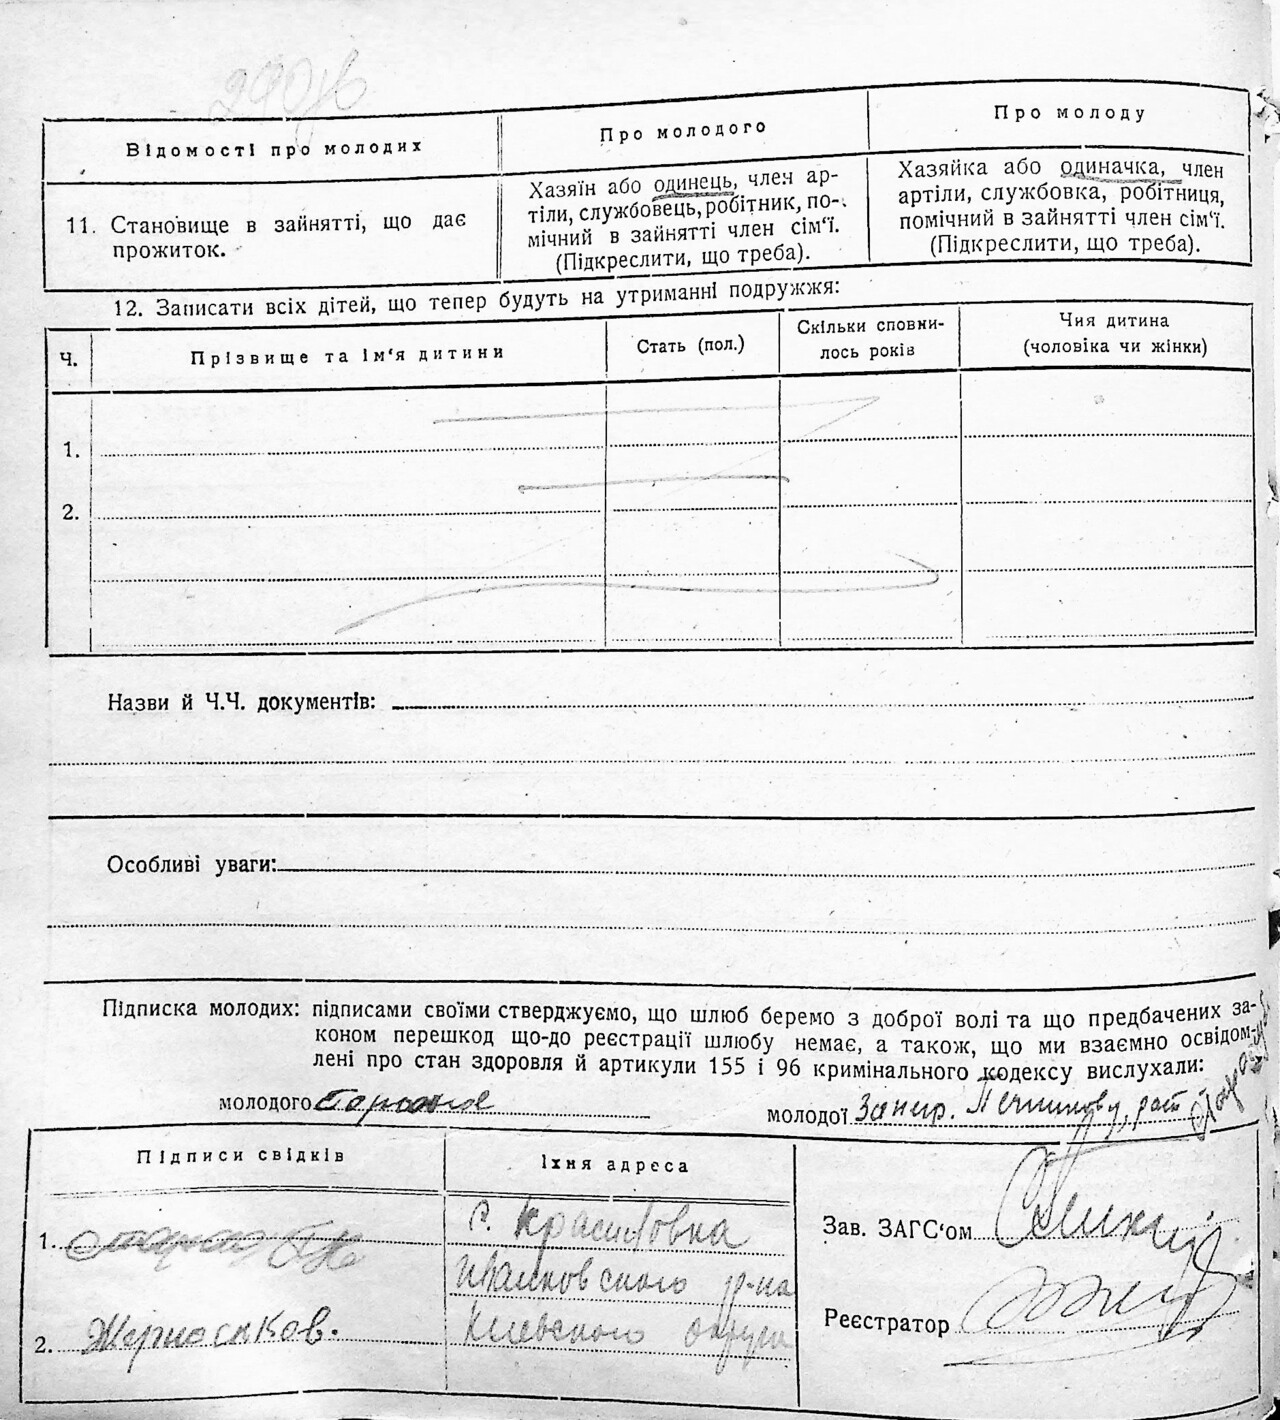 Відомості про молодих
Про молодого
Про молоду
11. Становище в зайнятті, що дає
прожиток.
Хазяїн або одинець, член ар-
тіли, службовець, робітник, по-
мічний в зайнятті член сім‘ї.
(Підкреслити, що треба).
Хазяйка або одиначка, член
артіли, службовка, робітниця,
помічний в зайнятті член сім‘ї.
(Підкреслити, що треба).
12. Записати всіх дітей, що тепер будуть на утриманні подружжя:
Ч.
Прізвище та ім‘я дитини
Стать (пол.)
Скільки сповни-
лось років
Чия дитина
(чоловіка чи жінки)
1.
2.
Назви й Ч.Ч. документів:
Особливі уваги:
Підписка молодих: підписами своїми стверджуємо, що шлюб беремо з доброї волі та що предбачених за-
коном перешкод що-до реєстрації шлюбу немає, а також, що ми взаємно освідом-
лені про стан здоровля й артикули 155 і 96 кримінального кодексу вислухали:
молодого
молодої
Підписи свідків
Їхня адреса
1.
с. Красиловка
Иванковского р-на
2. Жерносеков.
Киевского округа
Зав. ЗАГС‘ом
Реєстратор